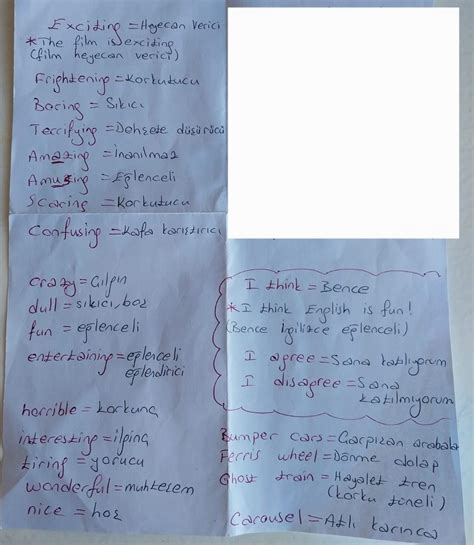 Exciting = Heyecan verici
*The film is exciting
(film heyecan verici)
Frightening = Korkutucu
Boring = Sıkıcı
Terrifying = Dehşete düşürücü
Amazing = İnanılmaz
Amusing = Eğlenceli
Scaring = Korkutucu
Confusing = Kafa karıştırıcı
crazy = Çılgın
dull = sıkıcı, boş
fun = eğlenceli
entertaining = eğlenceli
eğlendirici
horrible = korkunç
interesting = ilginç
tiring = yorucu
wonderful = muhteşem
nice = hoş
I think = Bence
*I think English is fun!
(Bence İngilizce eğlenceli)
I agree = Sana katılıyorum
I disagree = Sana
katılmıyorum
Bumper cars = Çarpışan arabalar
Ferris wheel = Dönme dolap
Ghost train = Hayalet tren
(korku tüneli)
Carousel = Atlı karınca